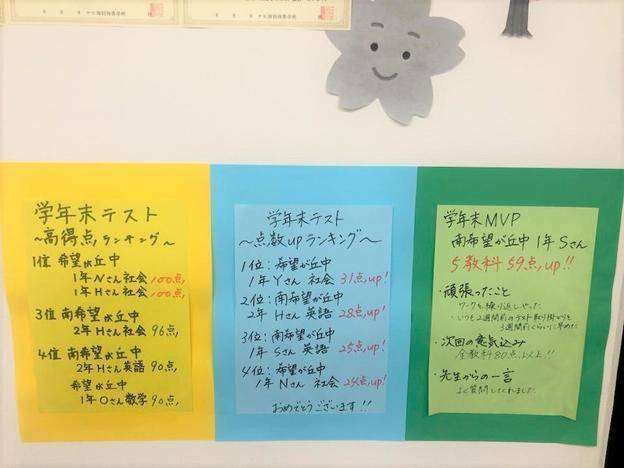 ナビ個別指導学院
ナビ個別指導学院
学年末テスト
～高得点ランキング～
1位 希望が丘中
1年Nさん社会 100点
1年Hさん社会 100点
3位 南希望が丘中
2年Hさん社会 96点
4位 南希望が丘中
2年Hさん英語 90点
希望が丘中
1年Oさん数学 90点
学年末テスト
～点数upランキング～
1位:希望が丘中
1年Yさん 社会 31点up!
2位:南希望が丘中
2年Hさん 英語 28点up!
3位:南希望が丘中
1年Sさん 英語 25点up!
4位:希望が丘中
1年Nさん 社会 24点up!
おめでとうございます!!
学年末MVP
南希望が丘中 1年Sさん
5教科 59点up!!
・頑張ったこと
ワークを繰り返しやった
・いつも2週間前のテスト取り掛かりを
3週間前くらいに早めた
・次回の意気込み
全教科80点以上!!
・先生からの一言
よく質問してくれました